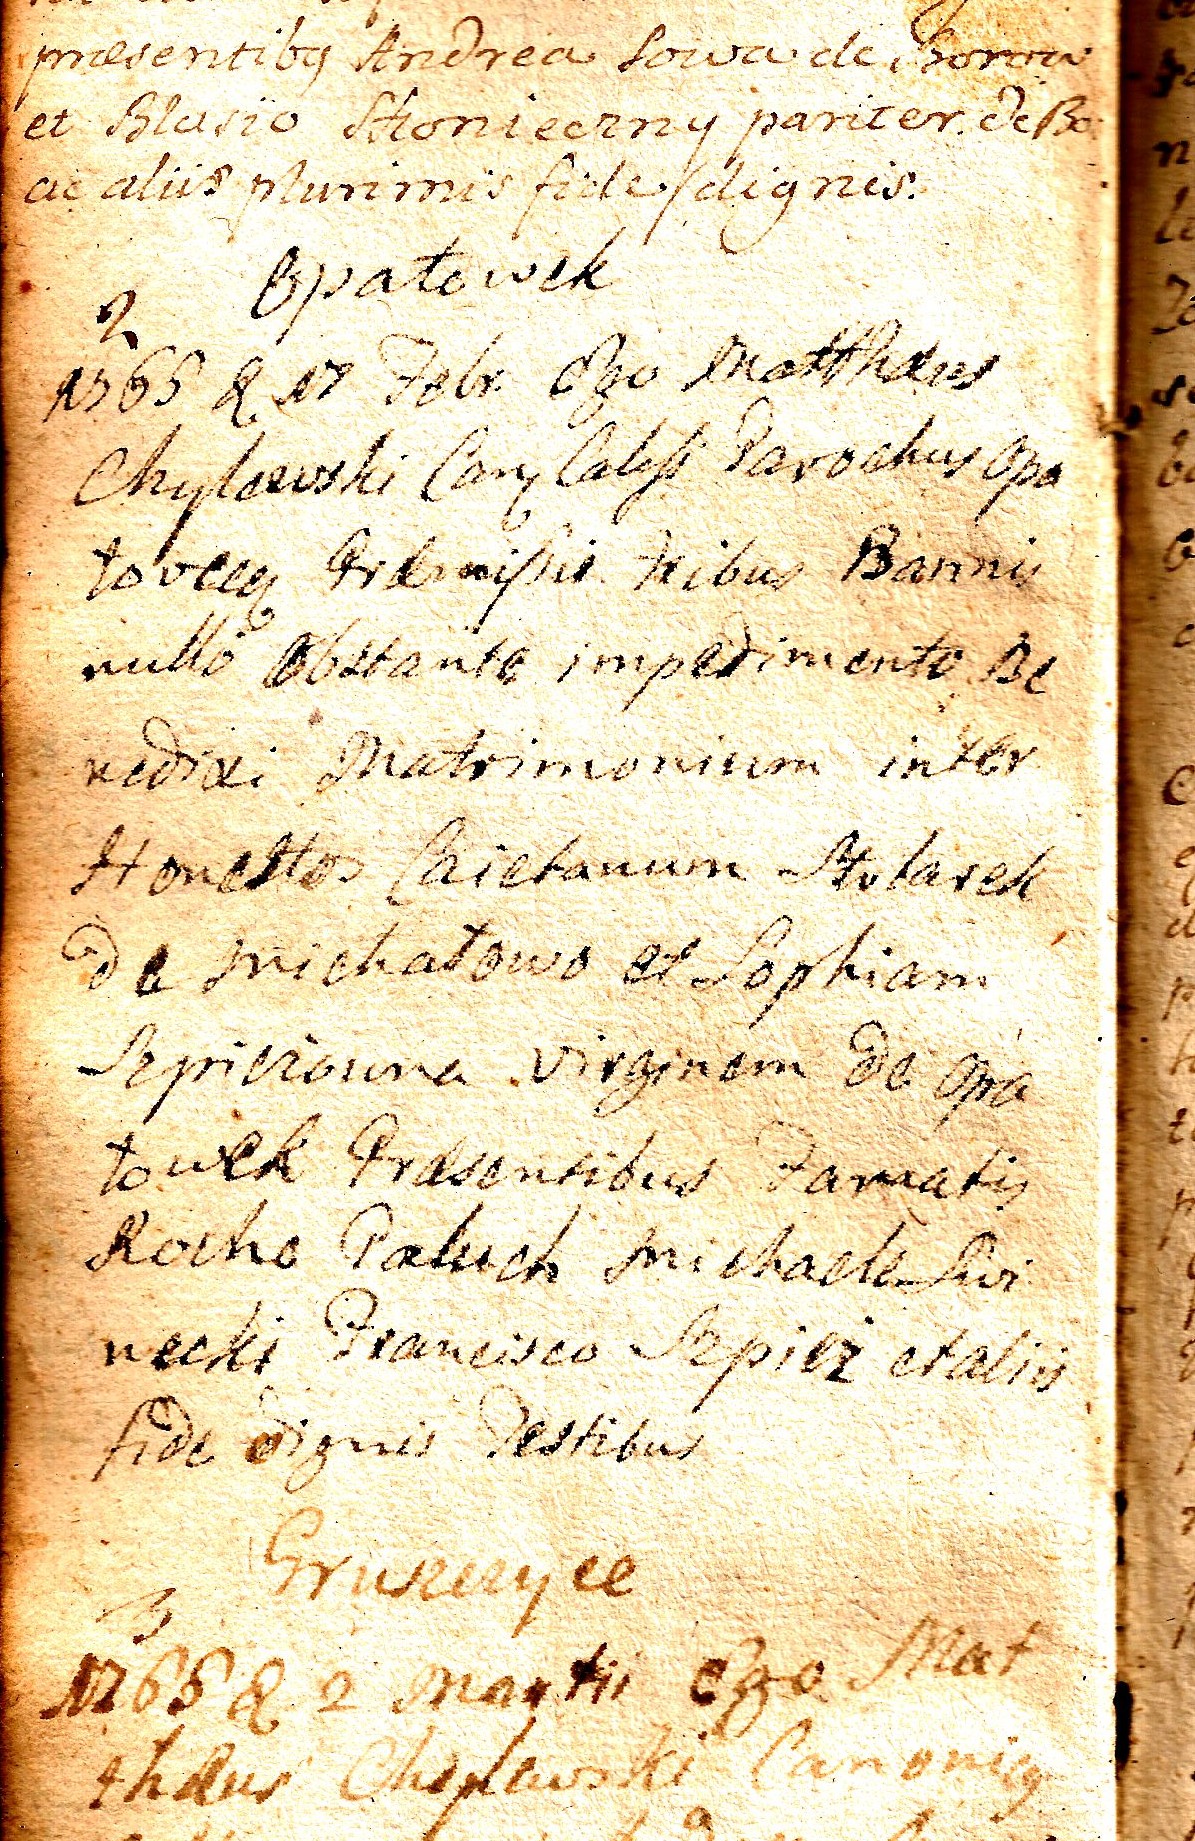 præsentibq Andrea Sowa de Borow
et Blasio Słonieczny pariter de Bo
ac aliis plurimis fide dignis.
Opatowek
2
1765 d 17 Febr Ego Matthæus
Chylewski Canq Caliss Parochus Opa
tovecq Præmissis tribus Bannis
nullo Obstante impedimento Be
nedixi Matrimonium inter
Honestos Caietanum Stolarek
de Michałowo et Sophiam
Szpiciowna virginem de Opa
towek Præsentibus Famatis
Rocho Paluch Michaele Swi
necki Francisco Szpicz et aliis
fide dignis Testibus
Gruszczyce
3
1765 d 2 Martii Ego Mat
thæus Chylewski Canonicq